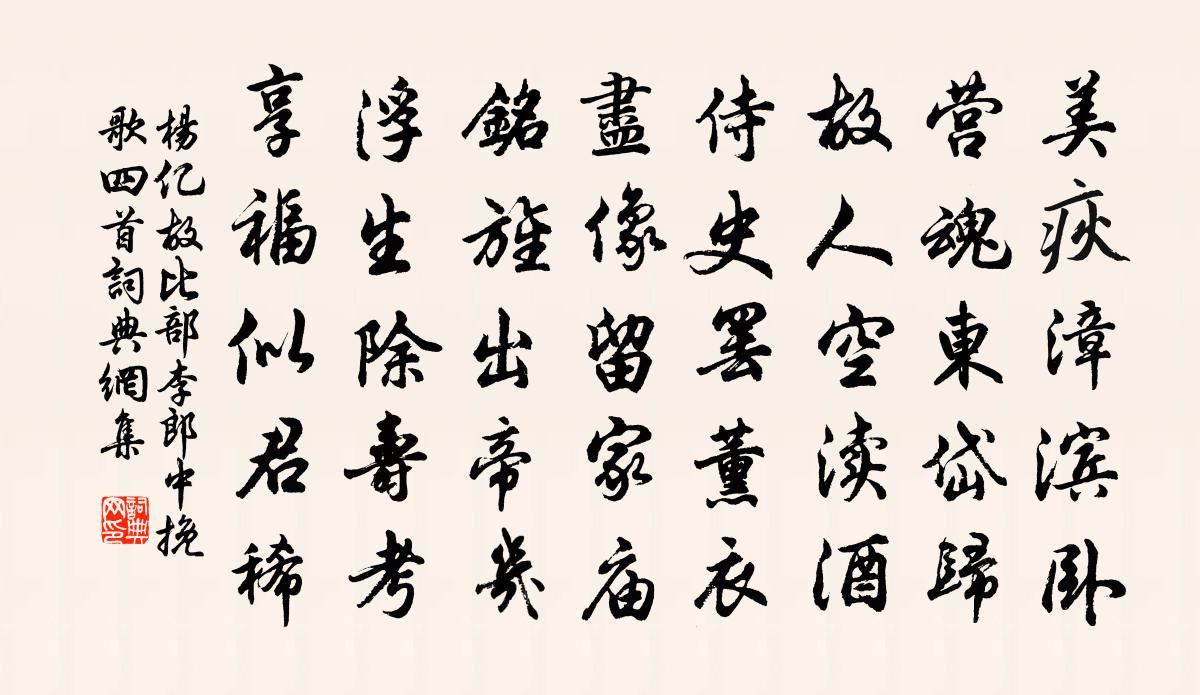 美疢漳滨卧
营魂東岱歸
故人空渍酒
侍史罢薫衣
畫像留家庙
銘旌出帝畿
浮生除壽考
享福似君稀
楊亿故比部李郎中挽
歌四首詞典網集
詞典
网印